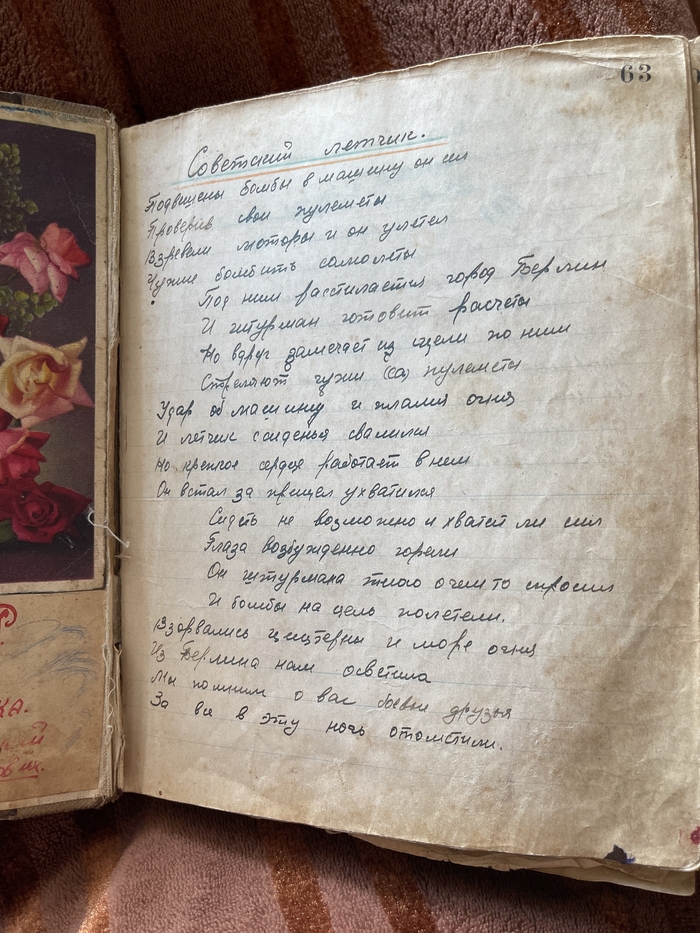 63
Советский летчик.
Подвишены бомбы в машину он сел
Проверив свои пулеметы
Взревели моторы и он улетел
Чужие бомбить самолеты
Под ним расстилается город Берлин
И штурман готовит расчеты
Но вдруг замечает из щели по ним
Стреляют чужи (са) пулеметы
Удар об машину и пламя огня
И летчик сиденья свалился
Но крепкое сердце работает в нем
Он встал за прицел ухватился
Сидеть не возможно и хватет ли сил
Глаза возбужденно горели
Он штурмана тихо о чем то спросил
И бомбы на цель полетели.
Взорвались цистерны и море огня
Из Берлина нам осветила
Мы помним о вас боевы друзья
За все в эту ночь отомстили.
КА.